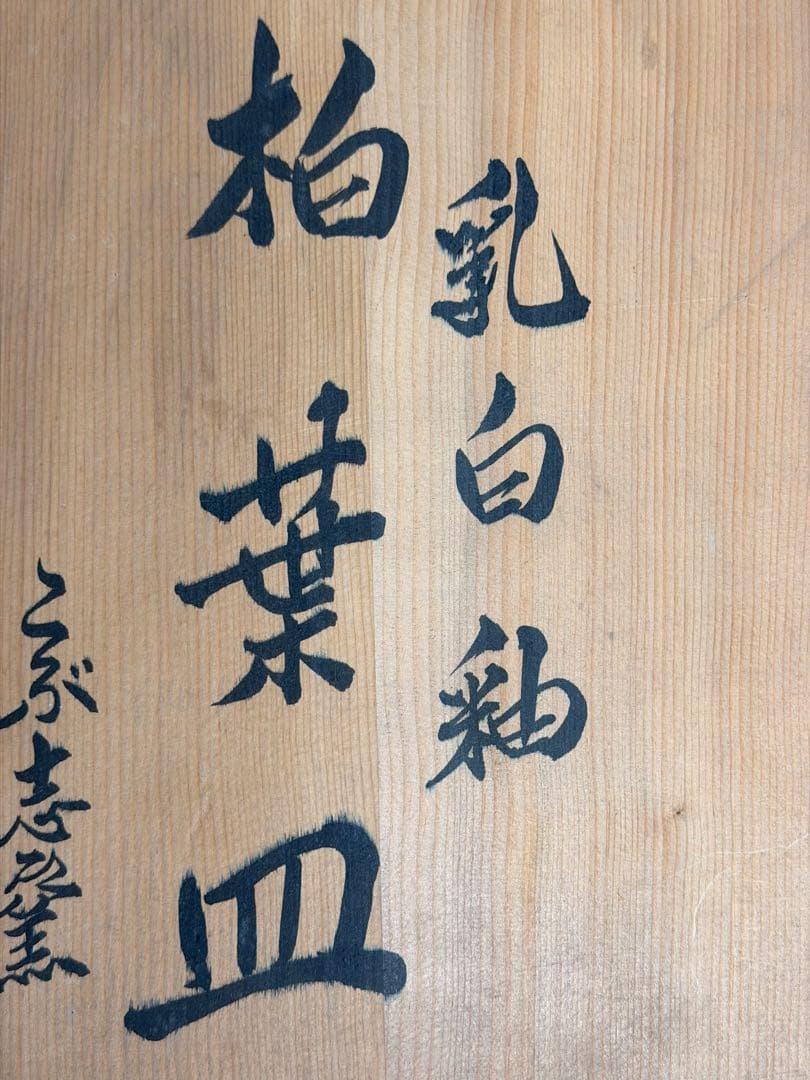 乳白釉
柏葉皿
こぶ志窯